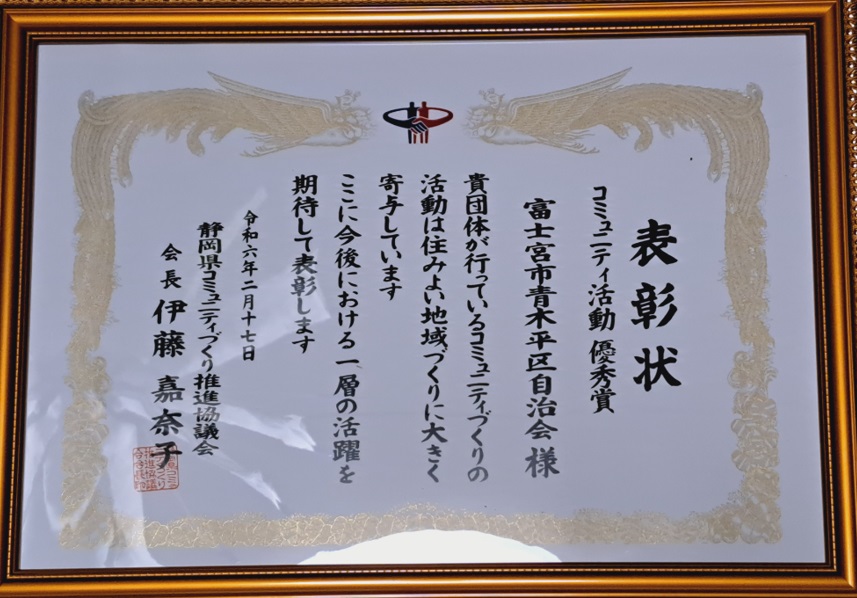 表彰状
コミュニティ活動 優秀賞
富士宮市青木平区自治会 様
貴団体が行っているコミュニティづくりの
活動は住みよい地域づくりに大きく
寄与しています
ここに今後における一層の活躍を
期待して表彰します
令和六年二月十七日
静岡県コミュニティづくり推進協議会
会長 伊藤 嘉奈子